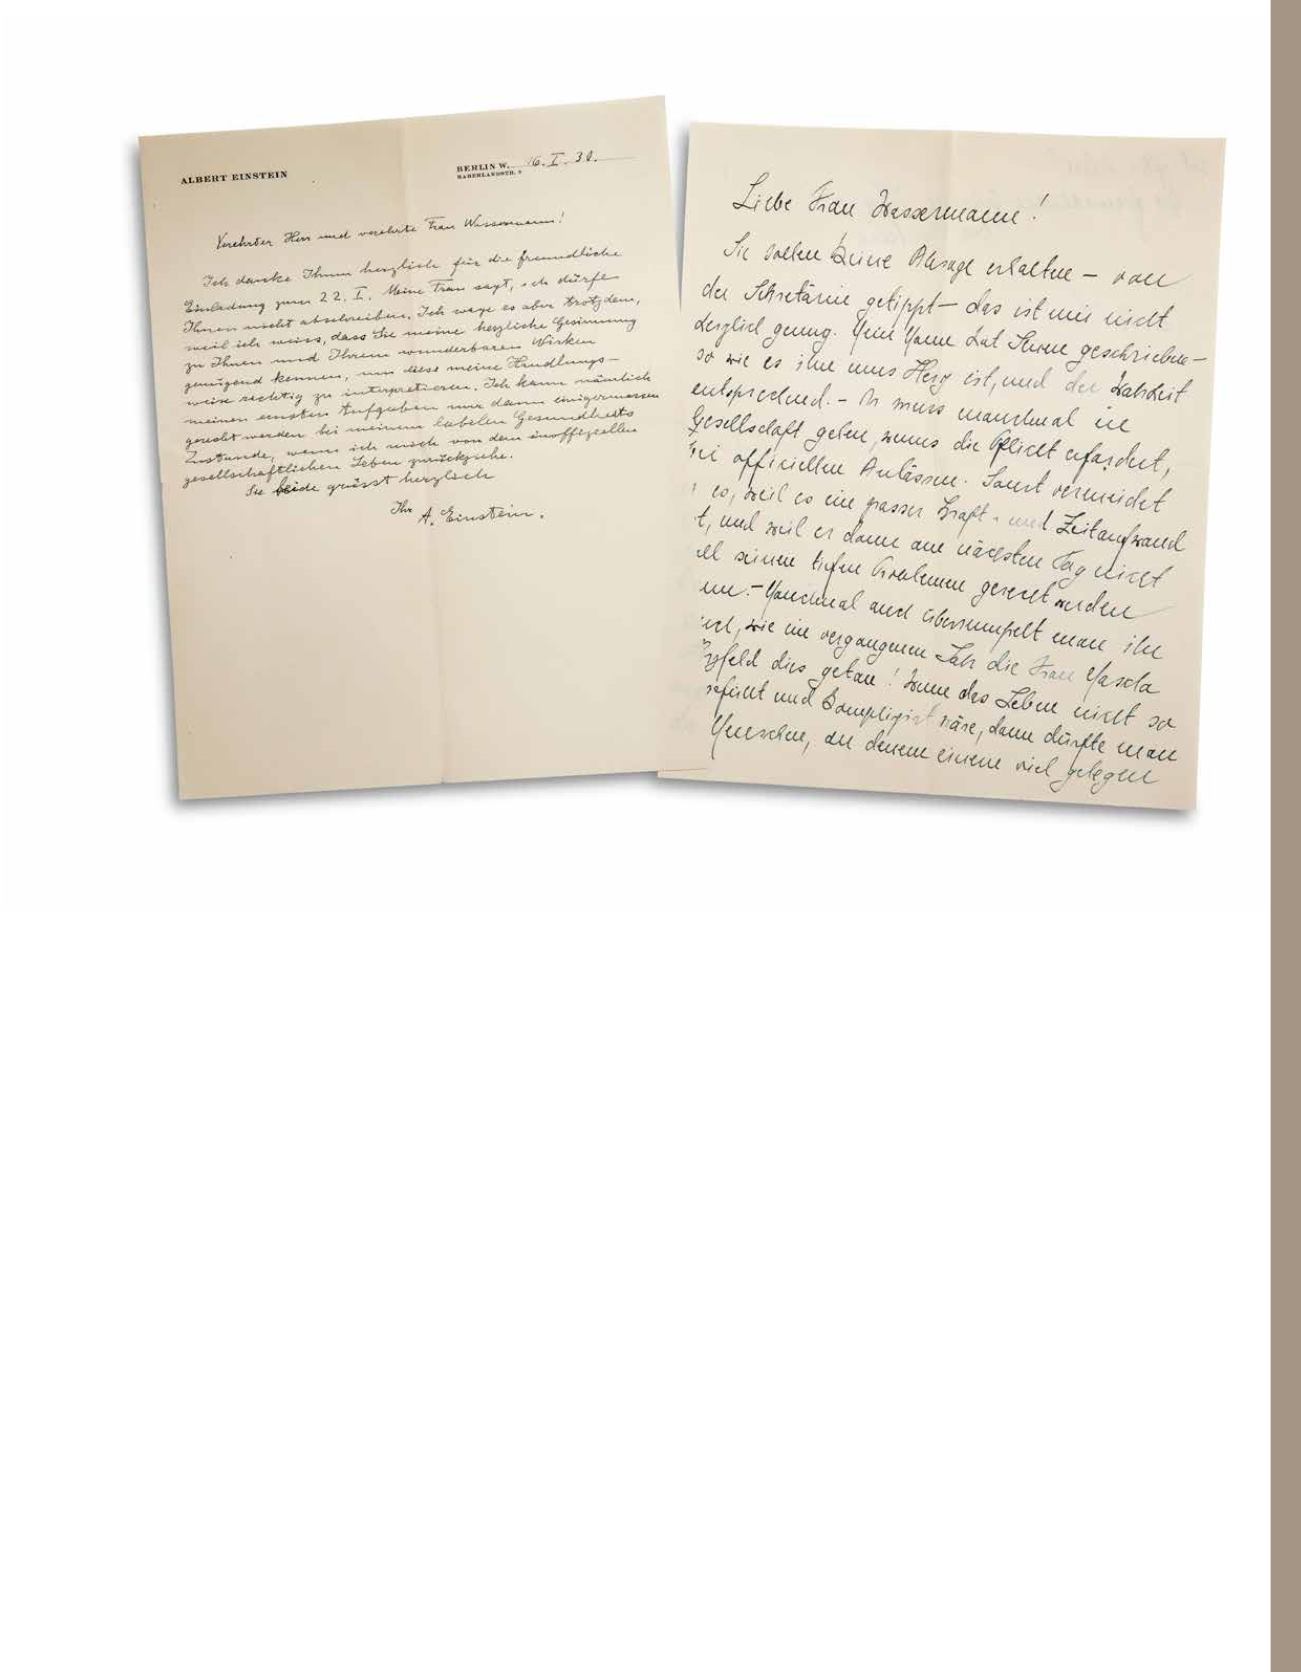 ALBERT EINSTEIN
BERLIN W. 16. I. 30.
HABERLANDSTR. 5
Verehrter Herr und verehrte Frau Wassermann!
Ich danke Ihnen herzlich für die freundliche
Einladung zum 22. I. Meine Frau sagt, ich dürfe
Ihnen nicht abschreiben. Ich wage es aber trotzdem,
weil ich weiss, dass Sie meine herzliche Gesinnung
zu Ihnen und Ihrem wunderbaren Wirken
genügend kennen, um diese meine Handlungs-
weise richtig zu interpretieren. Ich kann nämlich
meinen ernsten Aufgaben nur dann einigermassen
gerecht werden bei meinem labilen Gesundheits
Zustande, wenn ich mich von dem inoffiziellen
gesellschaftlichen Leben zurückziehe.
Sie beide grüsst herzlich
Ihr
A. Einstein.
Liebe Frau Wassermann!
Sie sollen keine Absage erhalten – von
der Sekretärin getippt – das ist mir nicht
herzlich genug. Mein Mann hat Ihnen geschrieben –
so wie es ihm ums Herz ist, und der Wahrheit
entsprechend. – Er muss manchmal in
Gesellschaft gehen, wenns die Pflicht erfordert,
bei officiellen Anlässen. Sonst vermeidet
es, weil es ein grosser Kraft- und Zeitaufwand
t, und weil er dann am nächsten Tag nicht
ll seinen tiefen Problemen gerecht werden
nn. – Manchmal auch überrumpelt man ihn
uch, wie im vergangenen Jahr die Frau
dies getan! Wenn das Leben nicht so
und kompliziert wäre, dann dürfte man
Menschen, an denen einem viel gelegen